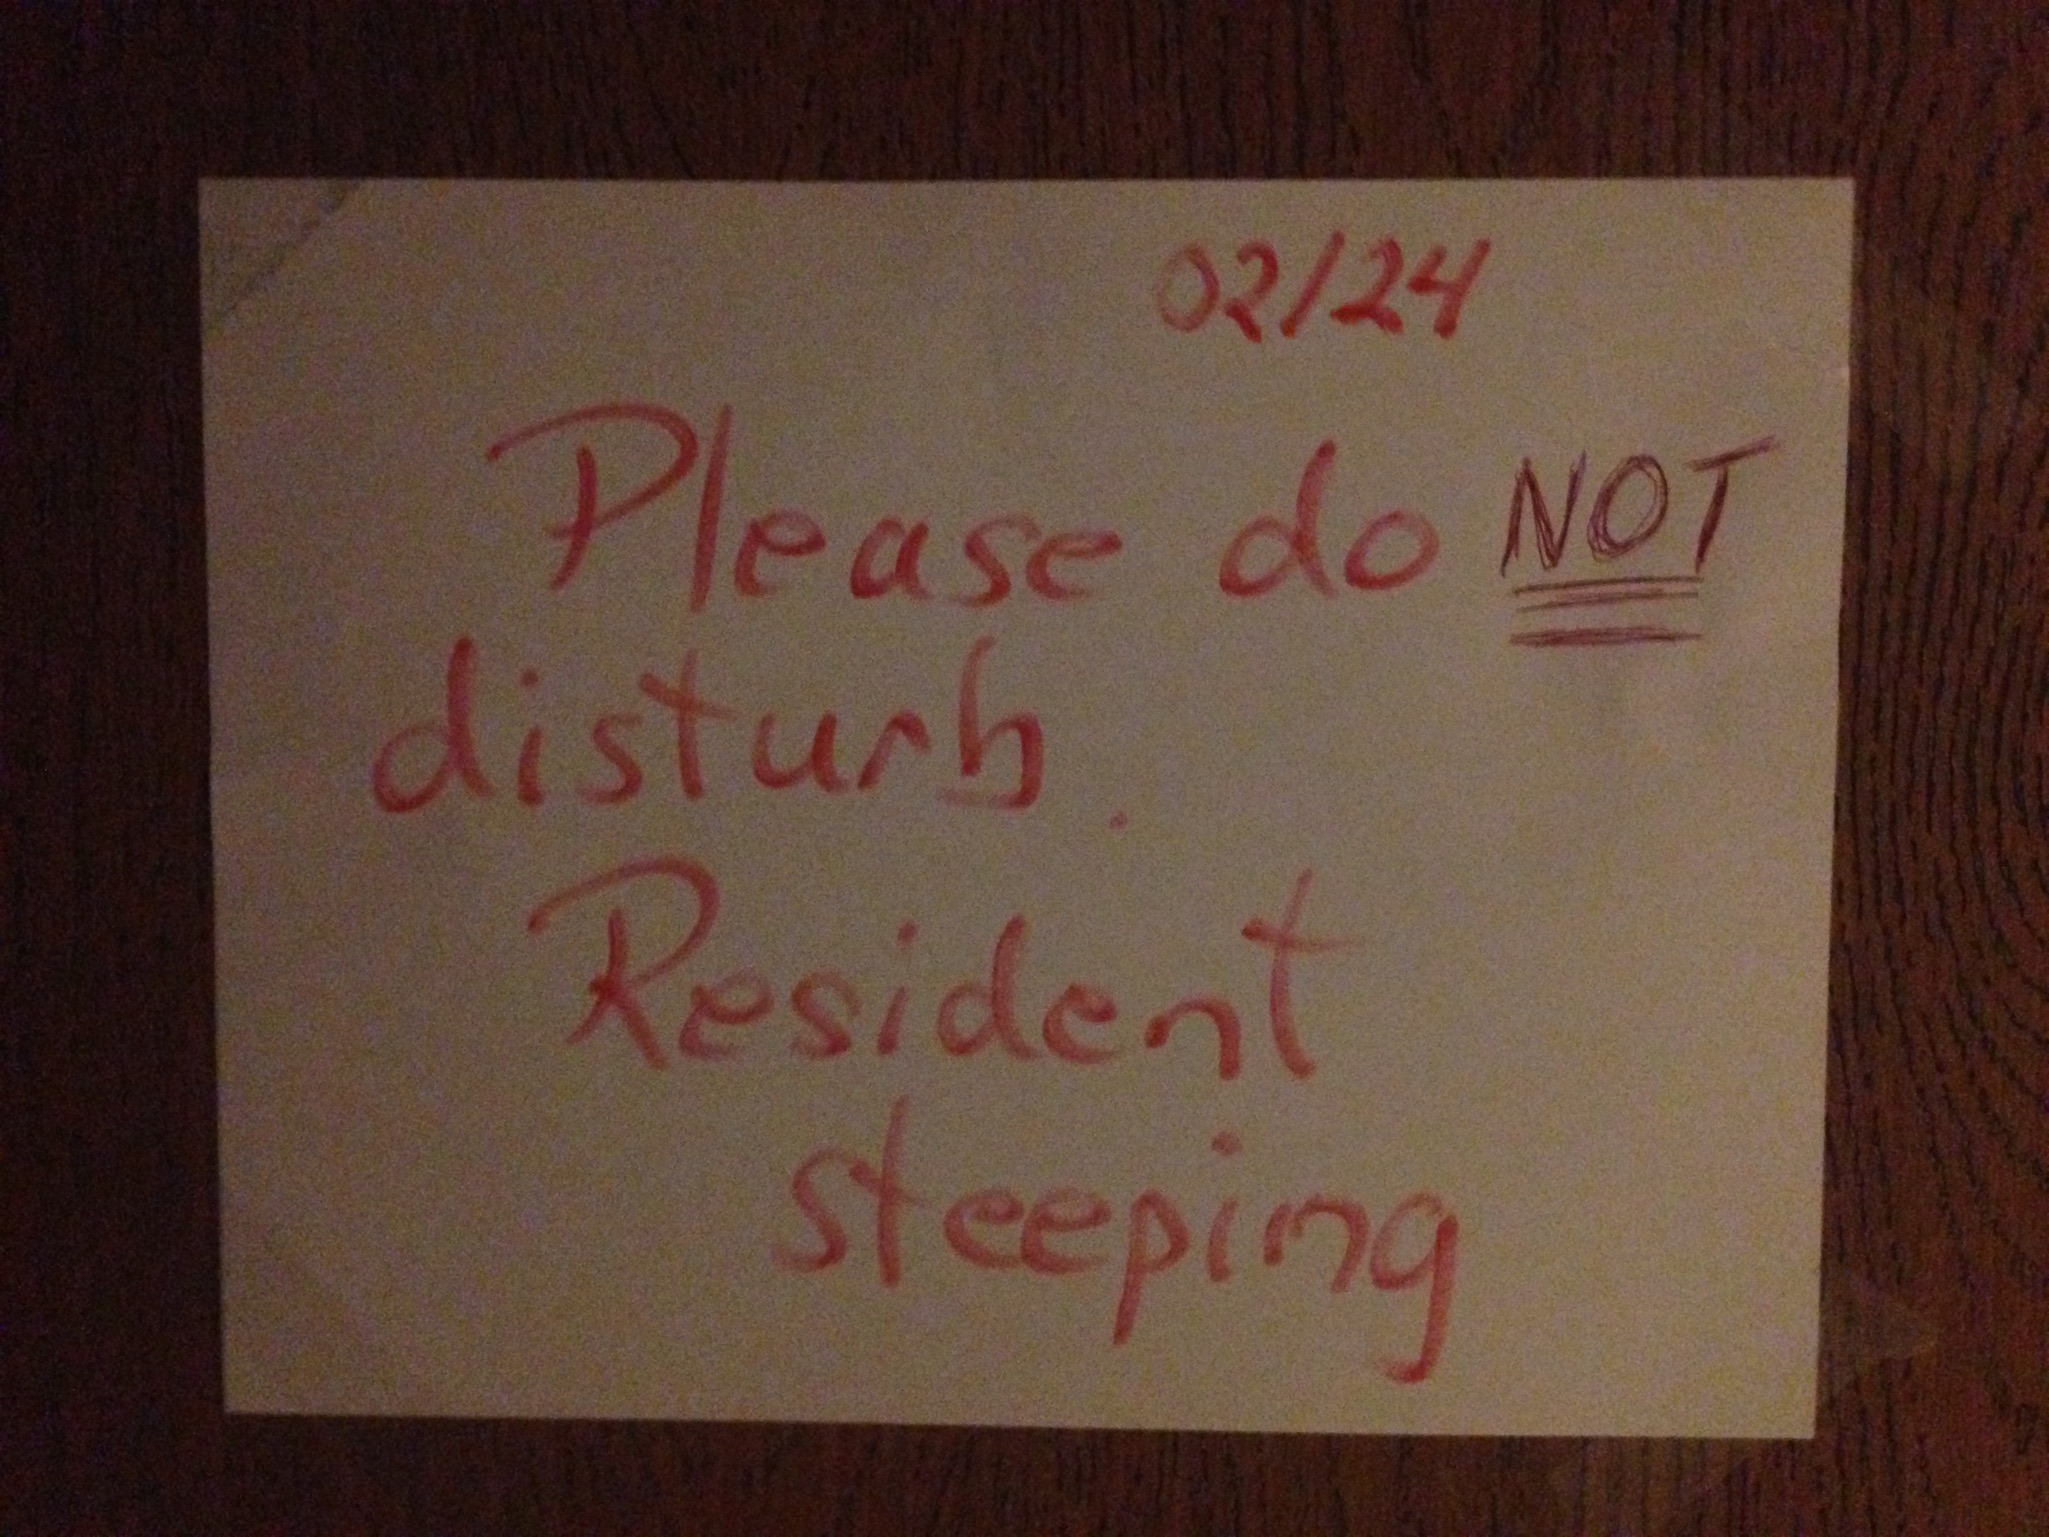 02/24
Please do NOT
disturb.
Resident
steeping